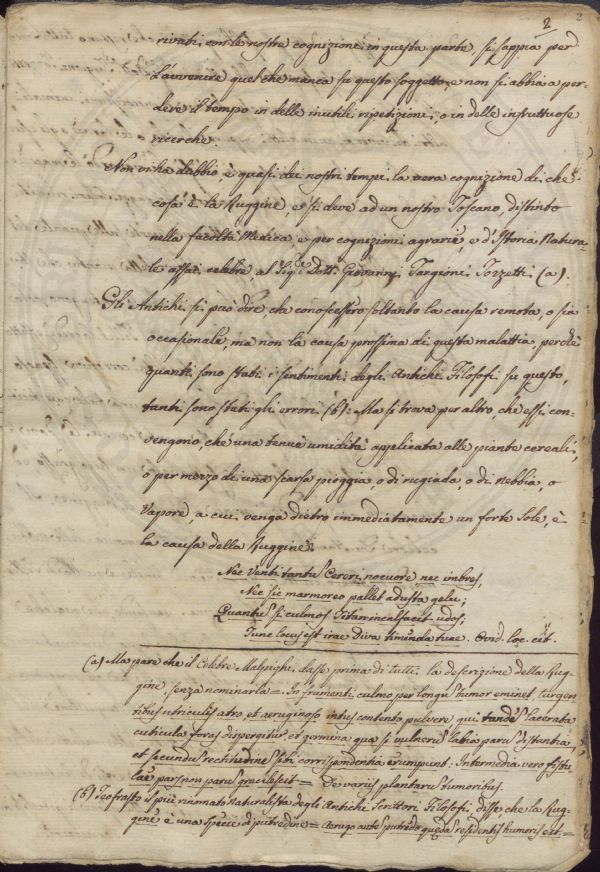 2
2
rivati con le nostre cognizioni in questa parte si sappia per
l'avvenire quel che manca su questo soggetto, e non si abbia a per-
dere il tempo in delle inutili ripetizioni, o in delle infruttuose
ricerche.
Non vi ha dubbio, è quasi dei nostri tempi la vera cognizione di che
cosa è la Ruggine, e si deve ad un nostro Toscano, distinto
nella facoltà Medica, e per cognizioni agrarie, e d'Istoria Natura-
le assai celebre, al Sigre Dott. Giovanni Targioni Tozzetti (a).
Gli Antichi si può dire, che conoscessero soltanto la causa remota, o sia
occasionale, ma non la causa prossima di questa malattia, perchè
quanti sono stati i sentimenti degli Antichi Filosofi su questo,
tanti sono stati gli errori (b): Ma si trova per altro, che essi con-
vengono, che una tenue umidità applicata alle piante cereali,
o per mezzo di una scarsa pioggia, o di rugiada, o di nebbia, o
vapore, a cui venga dietro immediatamente un forte Sole, è
la causa della Ruggine:
Nec Venti tantu Cereri nocuere, nec imbres,
Nec sic marmoreo pallet adusta gelu;
Quantu si culmos Titan incalfacit udos;
Tunc locus est irae Diva timenda tuae. Ovid. loc. cit.
(a) Ma pare che il Celebre Malpighi dasse prima di tutti la descrizione della Rug-
gine, senza nominarla = In frumenti culmo per longu tumor eminet turgen-
tibus utriculis atro, et aeruginoso intus contento pulvere, qui tandē lacerata
cuticula foras dispergitur, et gemina qua si vulneris labia paru distantia,
et secundu rectitudine sibi correspondentia erumpunt. Intermedia vero fistu-
lae pars non paru gracilescit = De variis plantaru tumoribus.
(b) Teofrasto il più rinomato naturalista degli Antichi Scrittori Filosofi, disse, che la Rug-
gine è una specie di putredine = Aerugo aute putredo quaeda residentis humoris est =